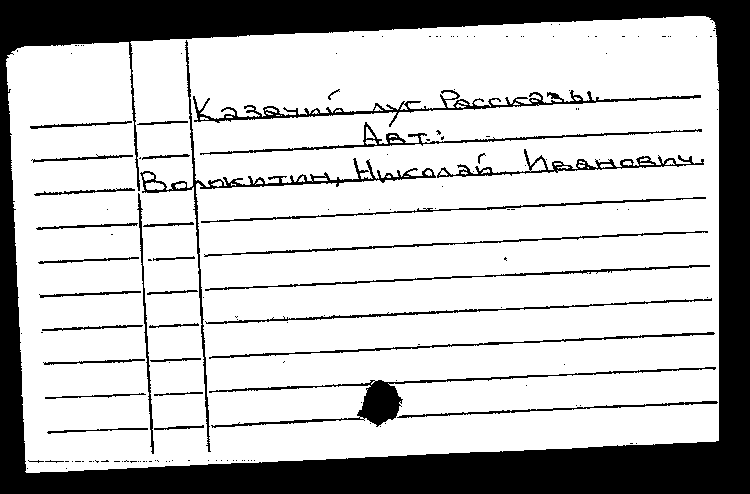 Казачий луг. Рассказы.
Авт.:
Волокитин, Николай Иванович.